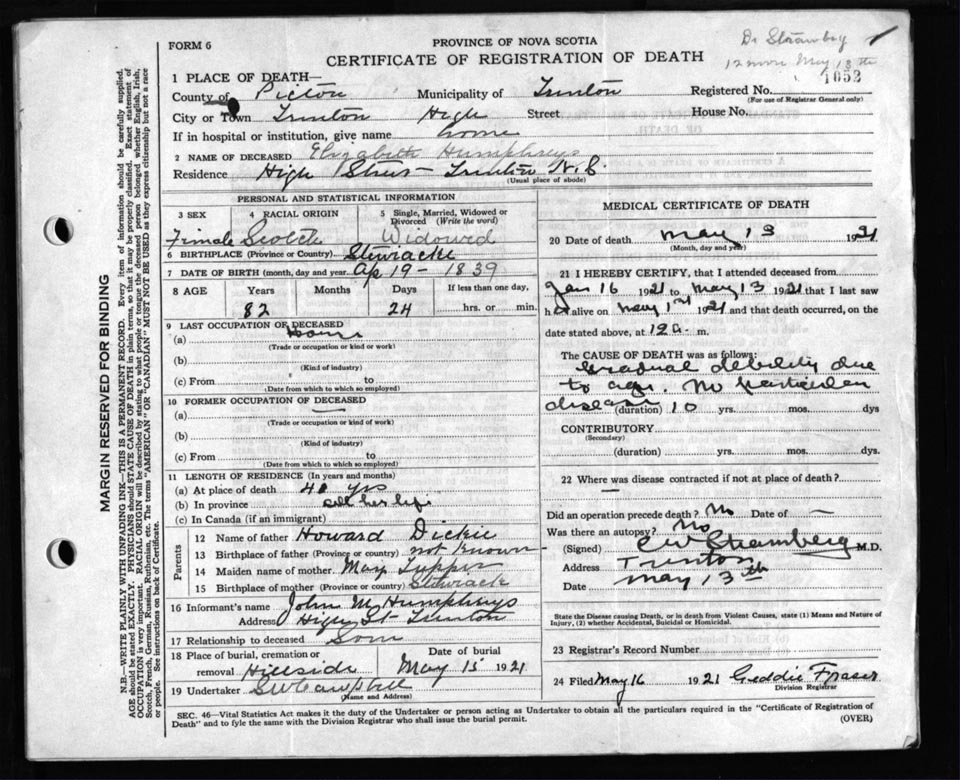 FORM 6
PROVINCE OF NOVA SCOTIA
CERTIFICATE OF REGISTRATION OF DEATH
12 noon May 13th
1052
1 PLACE OF DEATH—
County of Pictou Municipality of Trenton Registered No.
(For use of Registrar General only)
City or Town Trenton High Street House No.
If in hospital or institution, give name home
2 NAME OF DECEASED Elizabeth Humphreys
Residence High Street Trenton N.S.
(Usual place of abode)
PERSONAL AND STATISTICAL INFORMATION
3 SEX 4 RACIAL ORIGIN 5 Single, Married, Widowed or Divorced (Write the word)
Female Scotch Widowed
6 BIRTHPLACE (Province or Country) Stewiacke
7 DATE OF BIRTH (month, day and year) Ap 19 - 1839
8 AGE Years Months Days If less than one day,
82 24 hrs. or min.
9 LAST OCCUPATION OF DECEASED
(a) Home
(Trade or occupation or kind or work)
(b)
(Kind of industry)
(c) From to
(Date from which to which so employed)
10 FORMER OCCUPATION OF DECEASED
(a) —
(Trade or occupation or kind of work)
(b)
(Kind of industry)
(c) From to
(Date from which to which so employed)
11 LENGTH OF RESIDENCE (In years and months)
(a) At place of death 40 yrs
(b) In province all her life
(c) In Canada (if an immigrant)
Parents
12 Name of father Howard Dickie
13 Birthplace of father (Province or country) not known
14 Maiden name of mother. May Tupper
15 Birthplace of mother (Province or country) Stewiack
16 Informant's name John M Humphreys
Address High St Trenton
17 Relationship to deceased Son
18 Place of burial, cremation or removal Hillside Date of burial May 15 1921
19 Undertaker S W Campbell
(Name and Address)
MEDICAL CERTIFICATE OF DEATH
20 Date of death May 13 1921
(Month, day and year)
21 I HEREBY CERTIFY, that I attended deceased from
Jan 16 1921 to May 13 1921 that I last saw
h alive on May 1921 and that death occurred, on the
date stated above, at 12 a. m.
The CAUSE OF DEATH was as follows:
Gradual debility due
to age. No particular
disease (duration) 10 yrs. mos. dys
CONTRIBUTORY
(Secondary)
(duration) yrs. mos. dys.
22 Where was disease contracted if not at place of death?
Did an operation precede death? No Date of —
Was there an autopsy? No
(Signed) M.D.
Address Trenton
Date May 13th
State the Disease causing Death, or in death from Violent Causes, state (1) Means and Nature of Injury, (2) whether Accidental, Suicidal or Homicidal.
23 Registrar's Record Number
24 Filed May 16 1921 Geddie Fraser
Division Registrar
SEC. 46—Vital Statistics Act makes it the duty of the Undertaker or person acting as Undertaker to obtain all the particulars required in the "Certificate of Registration of
Death" and to fyle the same with the Division Registrar who shall issue the burial permit.
(OVER)
MARGIN RESERVED FOR BINDING
N.B.—WRITE PLAINLY WITH UNFADING INK—THIS IS A PERMANENT RECORD. Every item of information should be carefully supplied.
AGE should be stated EXACTLY. PHYSICIANS should STATE CAUSE OF DEATH in plain terms, so that it may be properly classified. Exact statement of
OCCUPATION is very important. RACIAL ORIGIN will be described by stating to what people or tongue the deceased person belonged whether English, Irish,
Scotch, French, German, Russian, Ruthenian, etc. The terms "AMERICAN" OR "CANADIAN" MUST NOT BE USED as they express citizenship but not a race
or people. See instructions on back of Certificate.